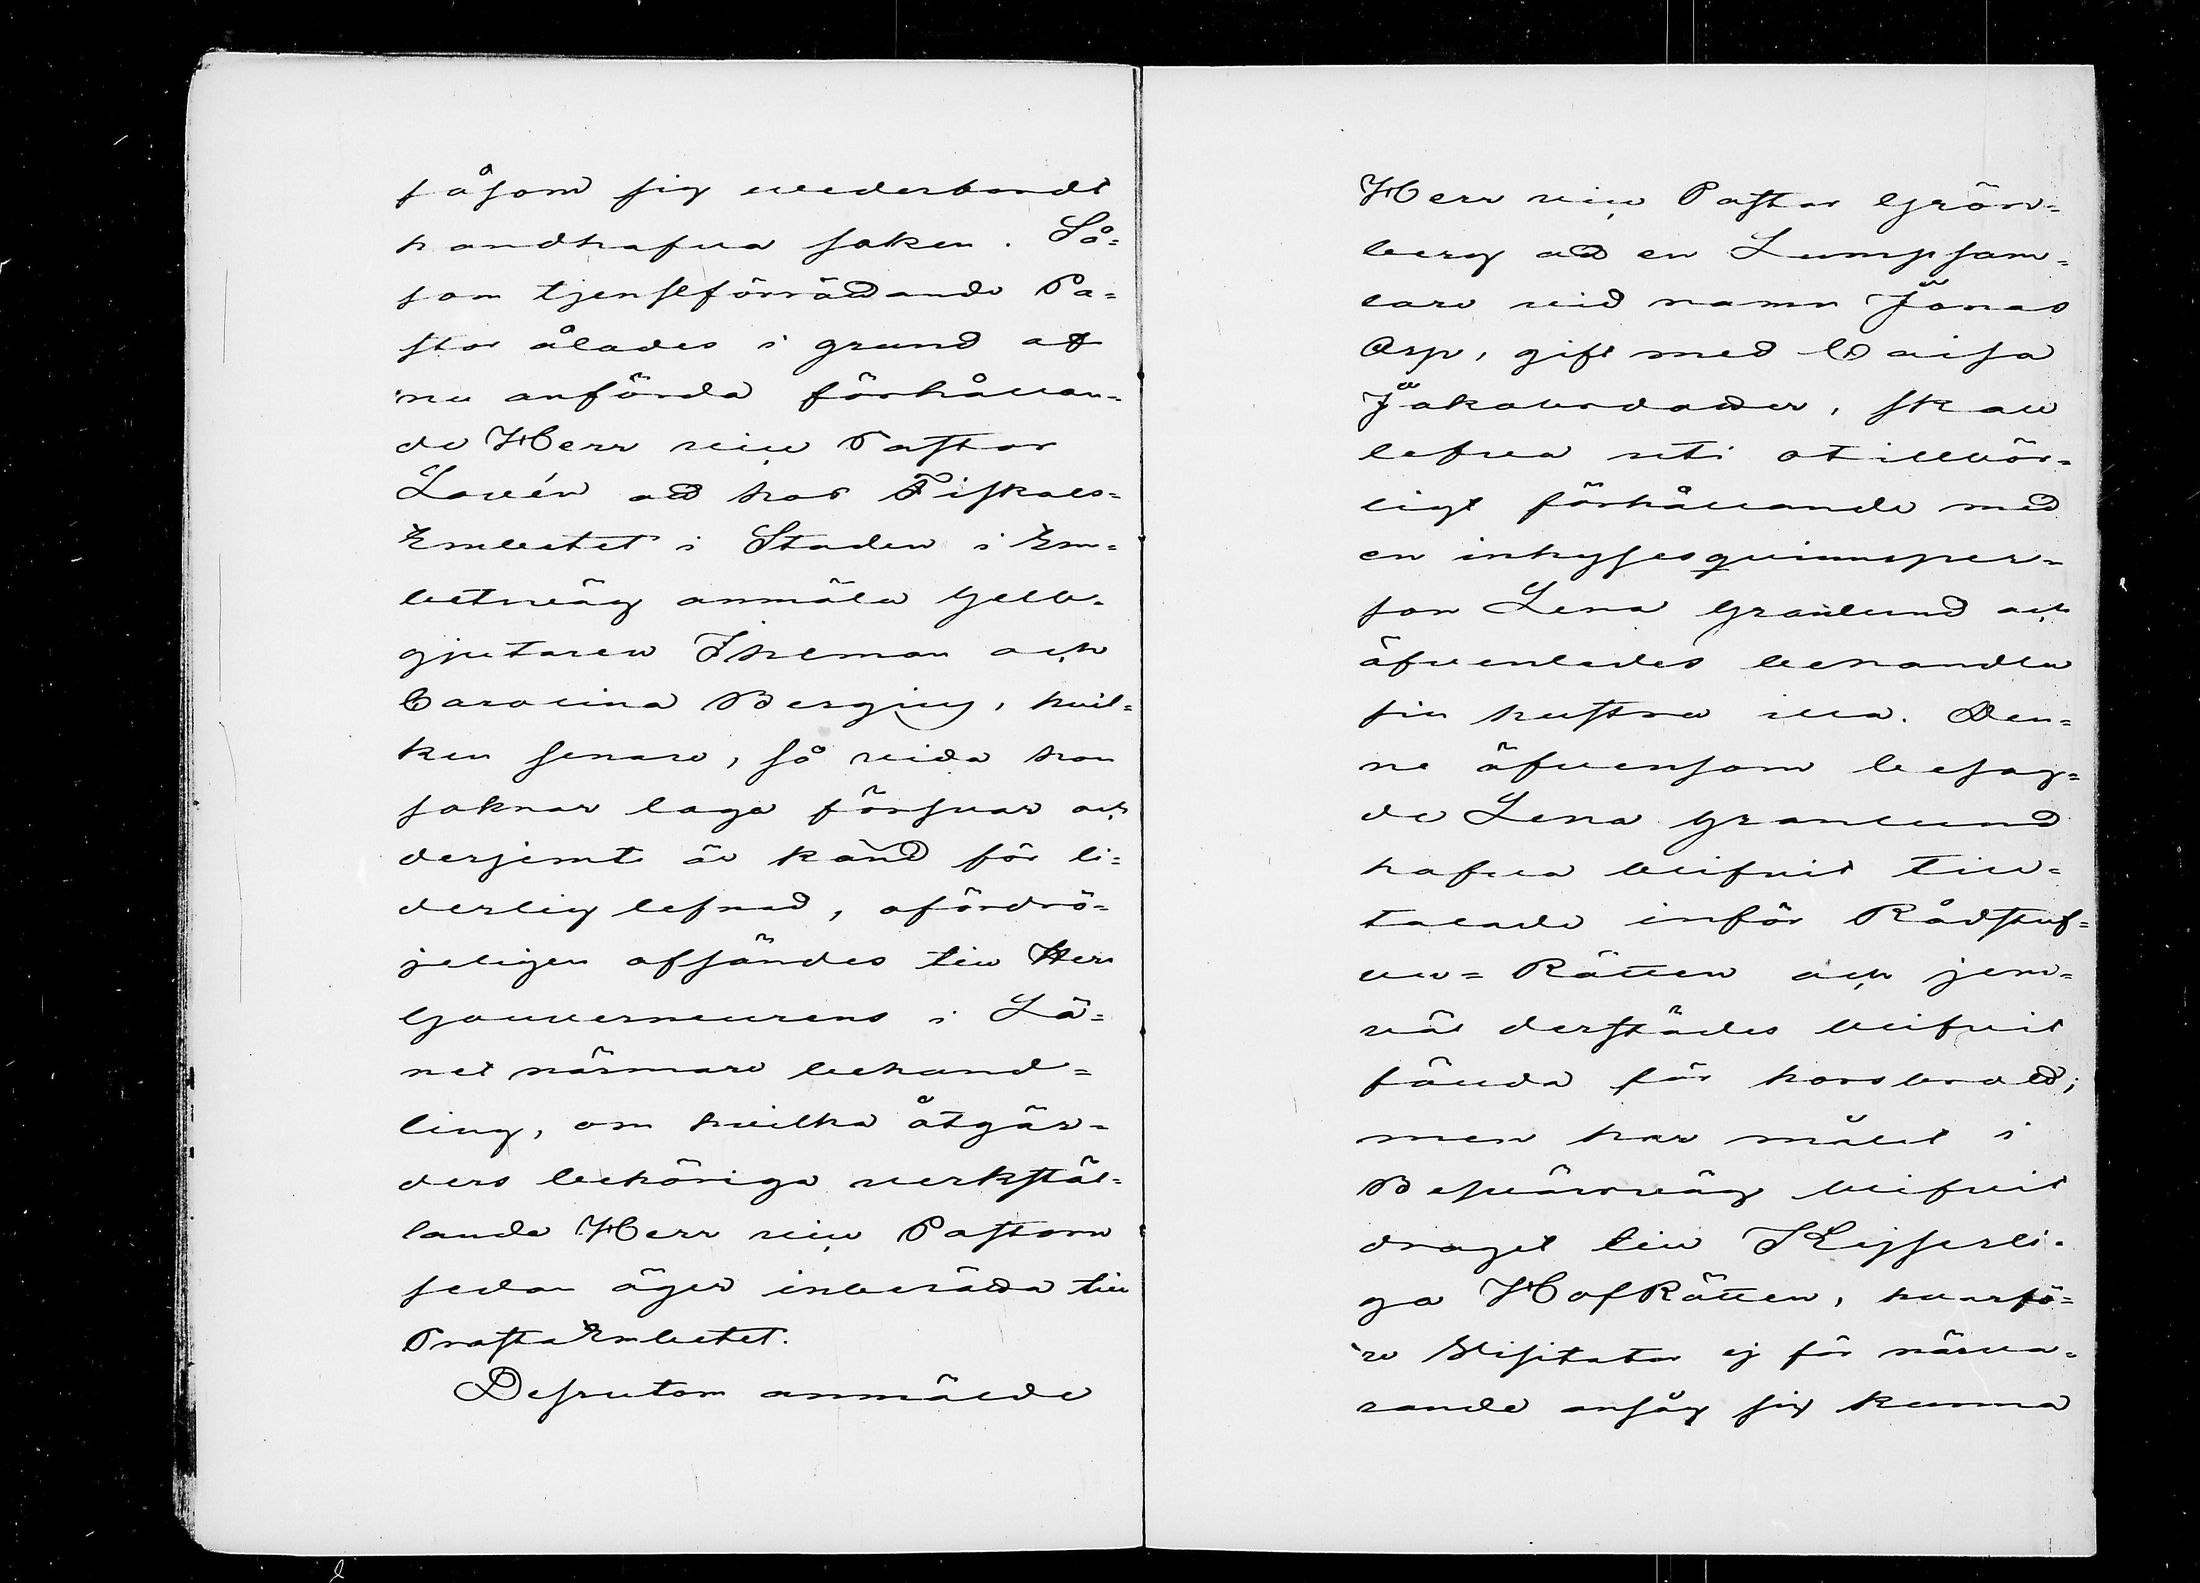 såsom sig wederbordt
handhafva saken. Så=
som tjenstförrättande Pa=
stor ålades i grund af
nu anförda förhållan=
de Herr vice Pastor
Lovén att hos Fiskals=
Embetet i Staden i Em=
betsväg anmäla Gelb=
gjutaren Ikreman och
Carolina Bergius, hvil=
ken senare, så vida hon
saknar laga försvar och
derjemte är känd för li=
derlig lefnad, ofördrö=
jeligen afsändes till Herr
Gouverneurens i Lä=
net närmare behand=
ling, om hvilka åtgär=
ders behöriga verkstäl=
lande Herr vice Pastorn
sedan äger inberätta till
ProstaEmbetet.
Dessutom anmälde
Herr vice Pastor Grön=
berg att en Lumpsam=
lare vid namn Jonas
Asp, gift med Caisa
Jakobsdotter, skall
lefva uti otillbör=
ligt förhållande med
en inhysesqvinnsper=
son Lena Granlund och
äfvenledes behandla
sin hustru illa. Den=
ne äfvensom besag=
de Lena Granlund
hafva blifvit till=
talade inför Rådstuf=
vu=Rätten och jem=
väl derstädes blifvit
fällda för horsbrott;
men har målet i
Besvärsväg blifvit
draget till Kejserli=
ga HofRätten, hvarfö=
re Visitator ej för närva=
rande ansåg sig kunna